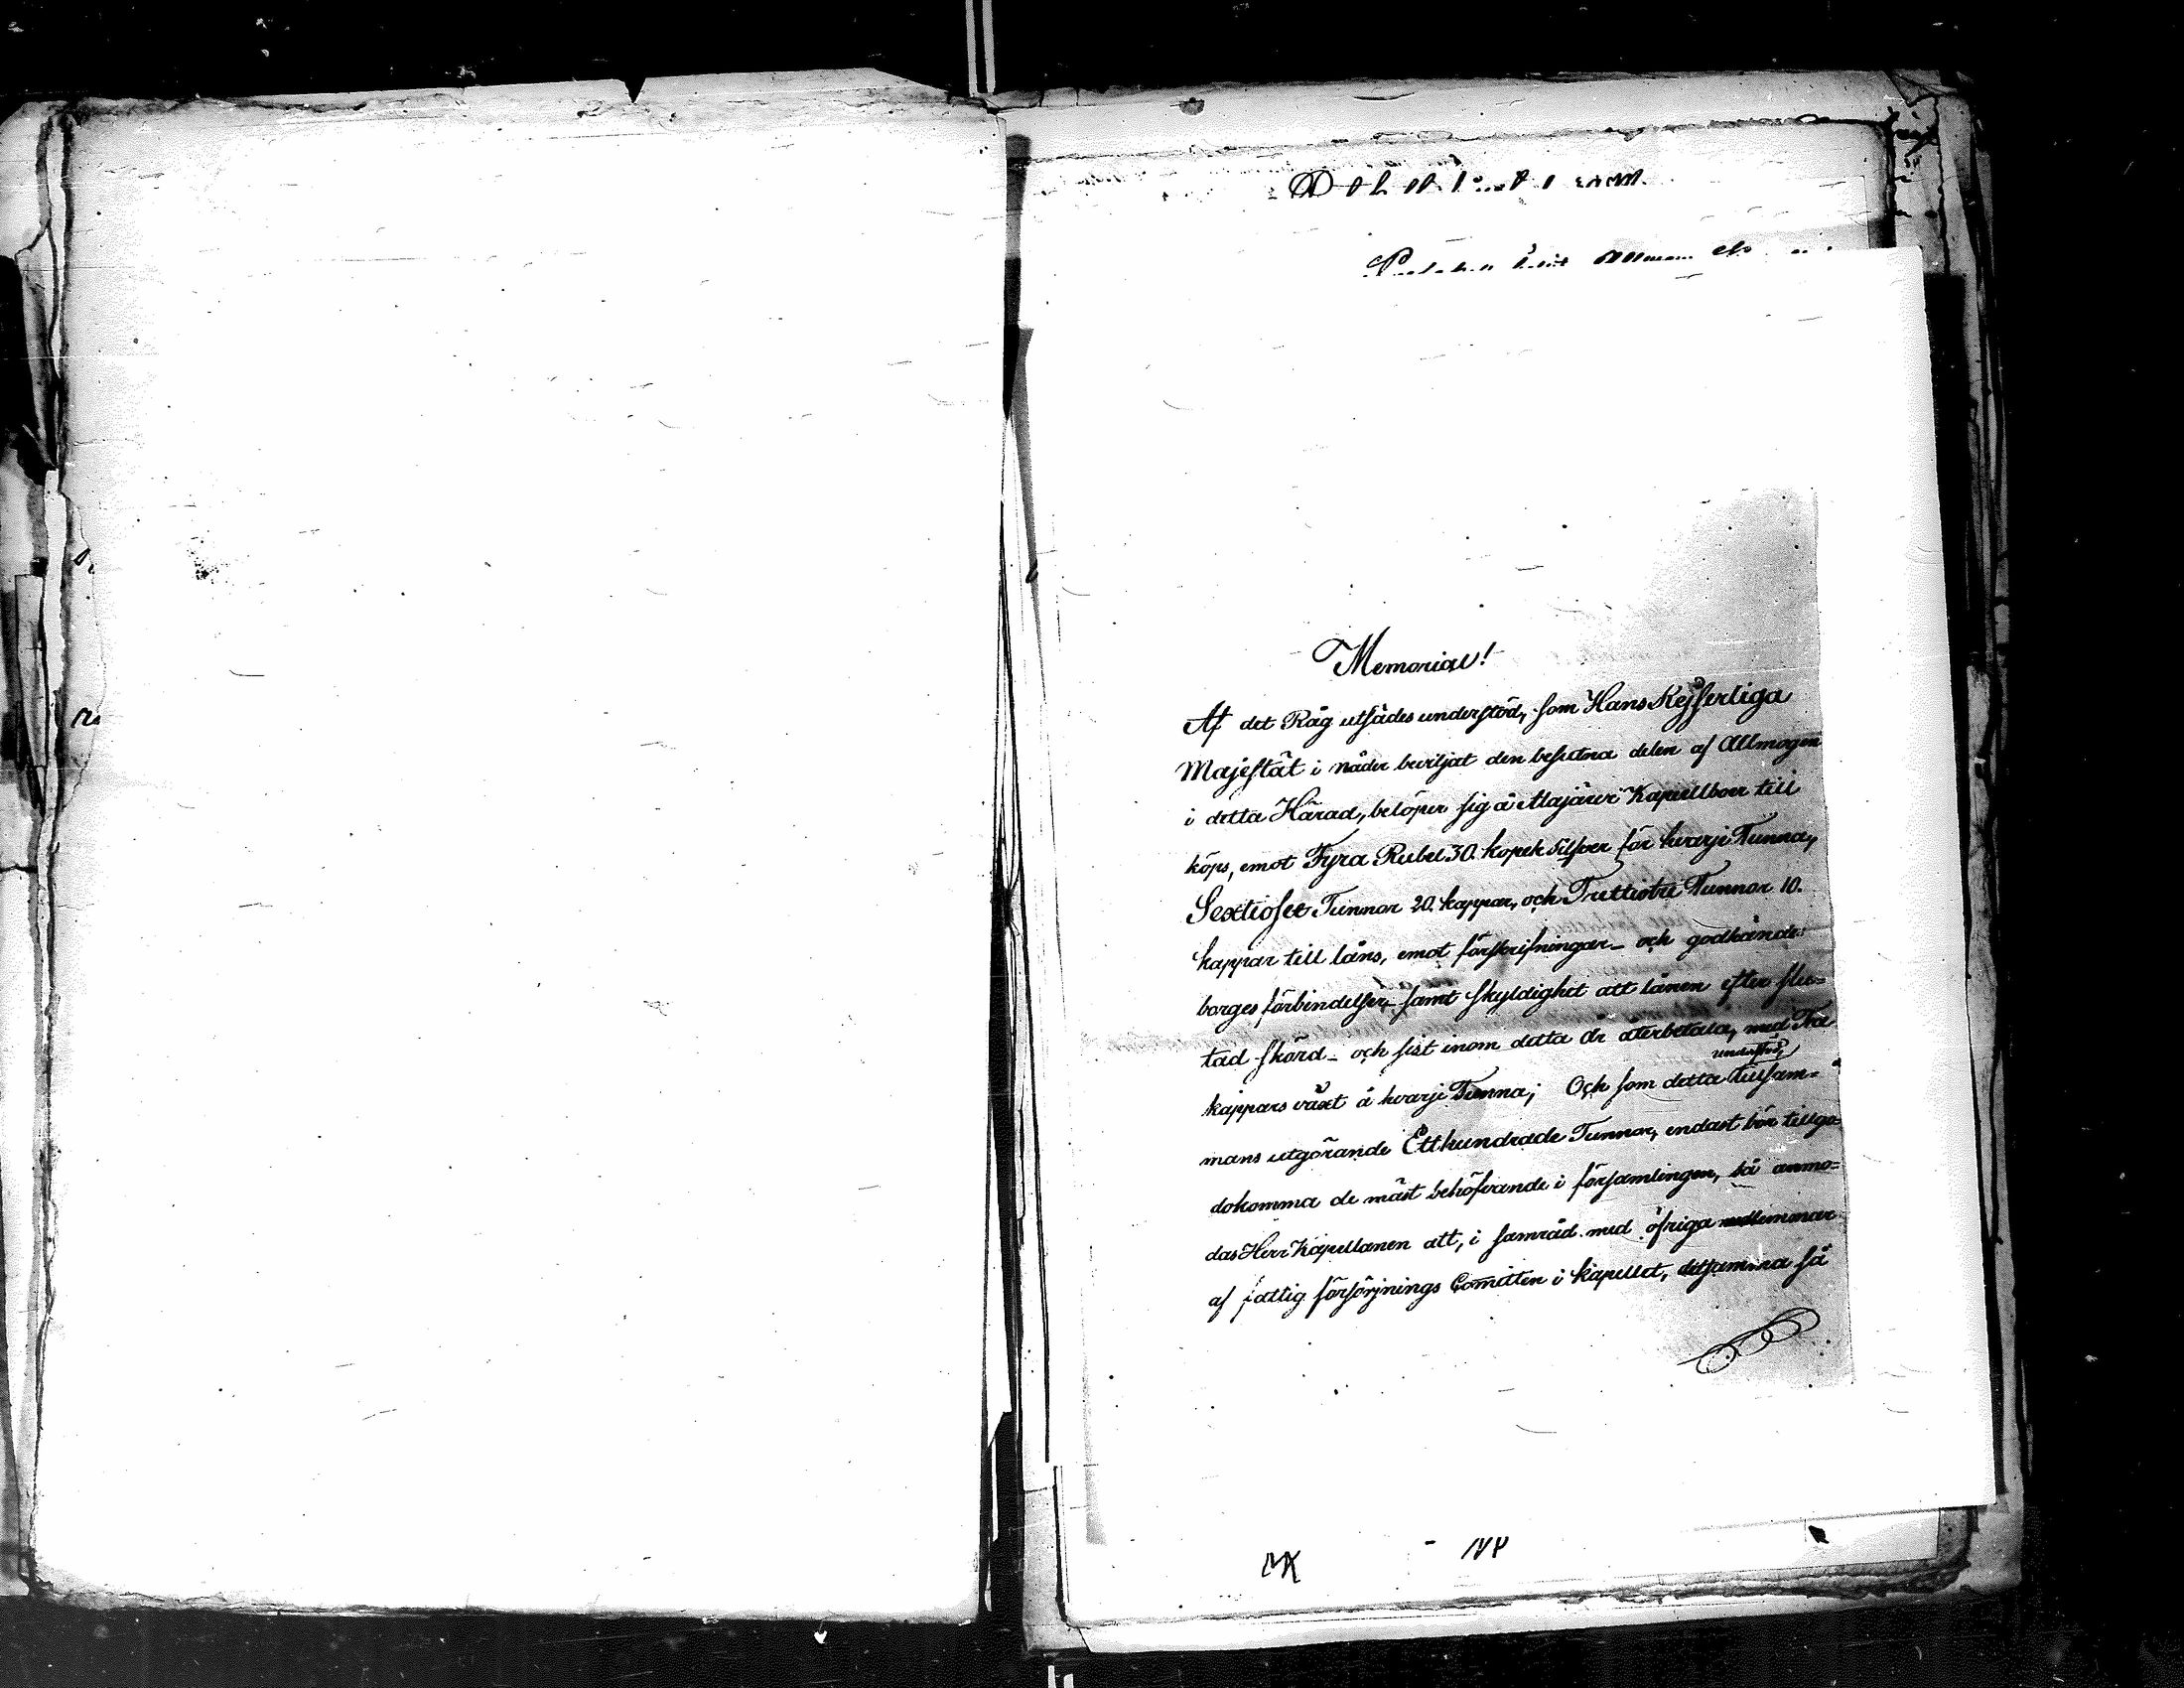 Memorial!
Af det Råg utsädes understöd, som Hans Kejserliga
Majestät i nåder beviljat den besutna delen af Allmogen
i detta Härad, belöper sig å Alajärvi Kapellboer till
köps, emot Fyra Rubel 30. kopek Silfver för hvarje Tunna,
Sextiosex Tunnor 20. kappar, och Trettiotre Tunnor 10.
kappar till låns, emot förskrifningar _ och godkände
borges förbindelser _ samt skyldighet att lånen efter slu=
tad skörd _ och sist inom detta år återbetala, med Två
kappars växt å hvarje Tunna; Och som detta understöd, tillsam=
mans utgörande Etthundrade Tunnor, endast bör tillgo
dokomma de mäst behöfvande i församlingen, så anmo=
das Herr Kapellanen att, i samråd med öfriga medlemmar
af fattig försörjnings Comitten i kapellet, detsamma så